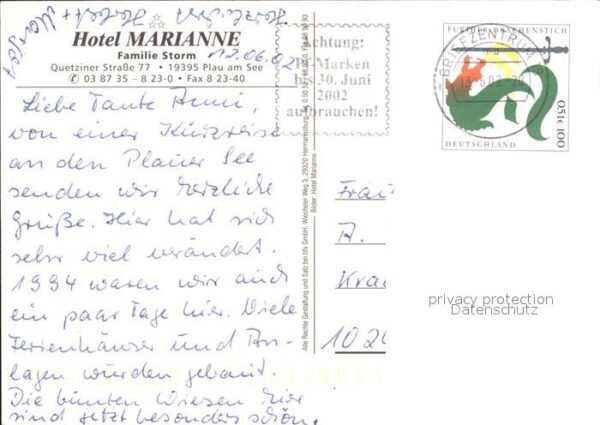 Herzlichst Herbert + Margot
Hotel MARIANNE
Familie Storm
Quetziner Straße 77 • 19395 Plau am See
✆ 03 87 35 – 8 23-0 • Fax 8 23-40
13.06.02
Liebe Tante Anni,
von einer Kurzreise
an den Plauer See
senden wir herzliche
Grüße. Hier hat sich
sehr viel verändert.
1994 waren wir auch
ein paar Tage hier. Viele
Ferienhäuser und An-
lagen wurden gebaut.
Die bunten Wiesen hier
sind jetzt besonders schön.
Alle Rechte, Gestaltung und Satz bei thv GmbH, Wiecheler Weg 3, 29320 Hermannsburg
Bilder: Hotel Marianne
Achtung:
PF-Marken
bis 30. Juni
2002
aufbrauchen!
BRIEFZENTRUM
13.6.02-20
DEUTSCHLAND
0,51€ 100
Frau
A.
Kra
102
privacy protection
Datenschutz